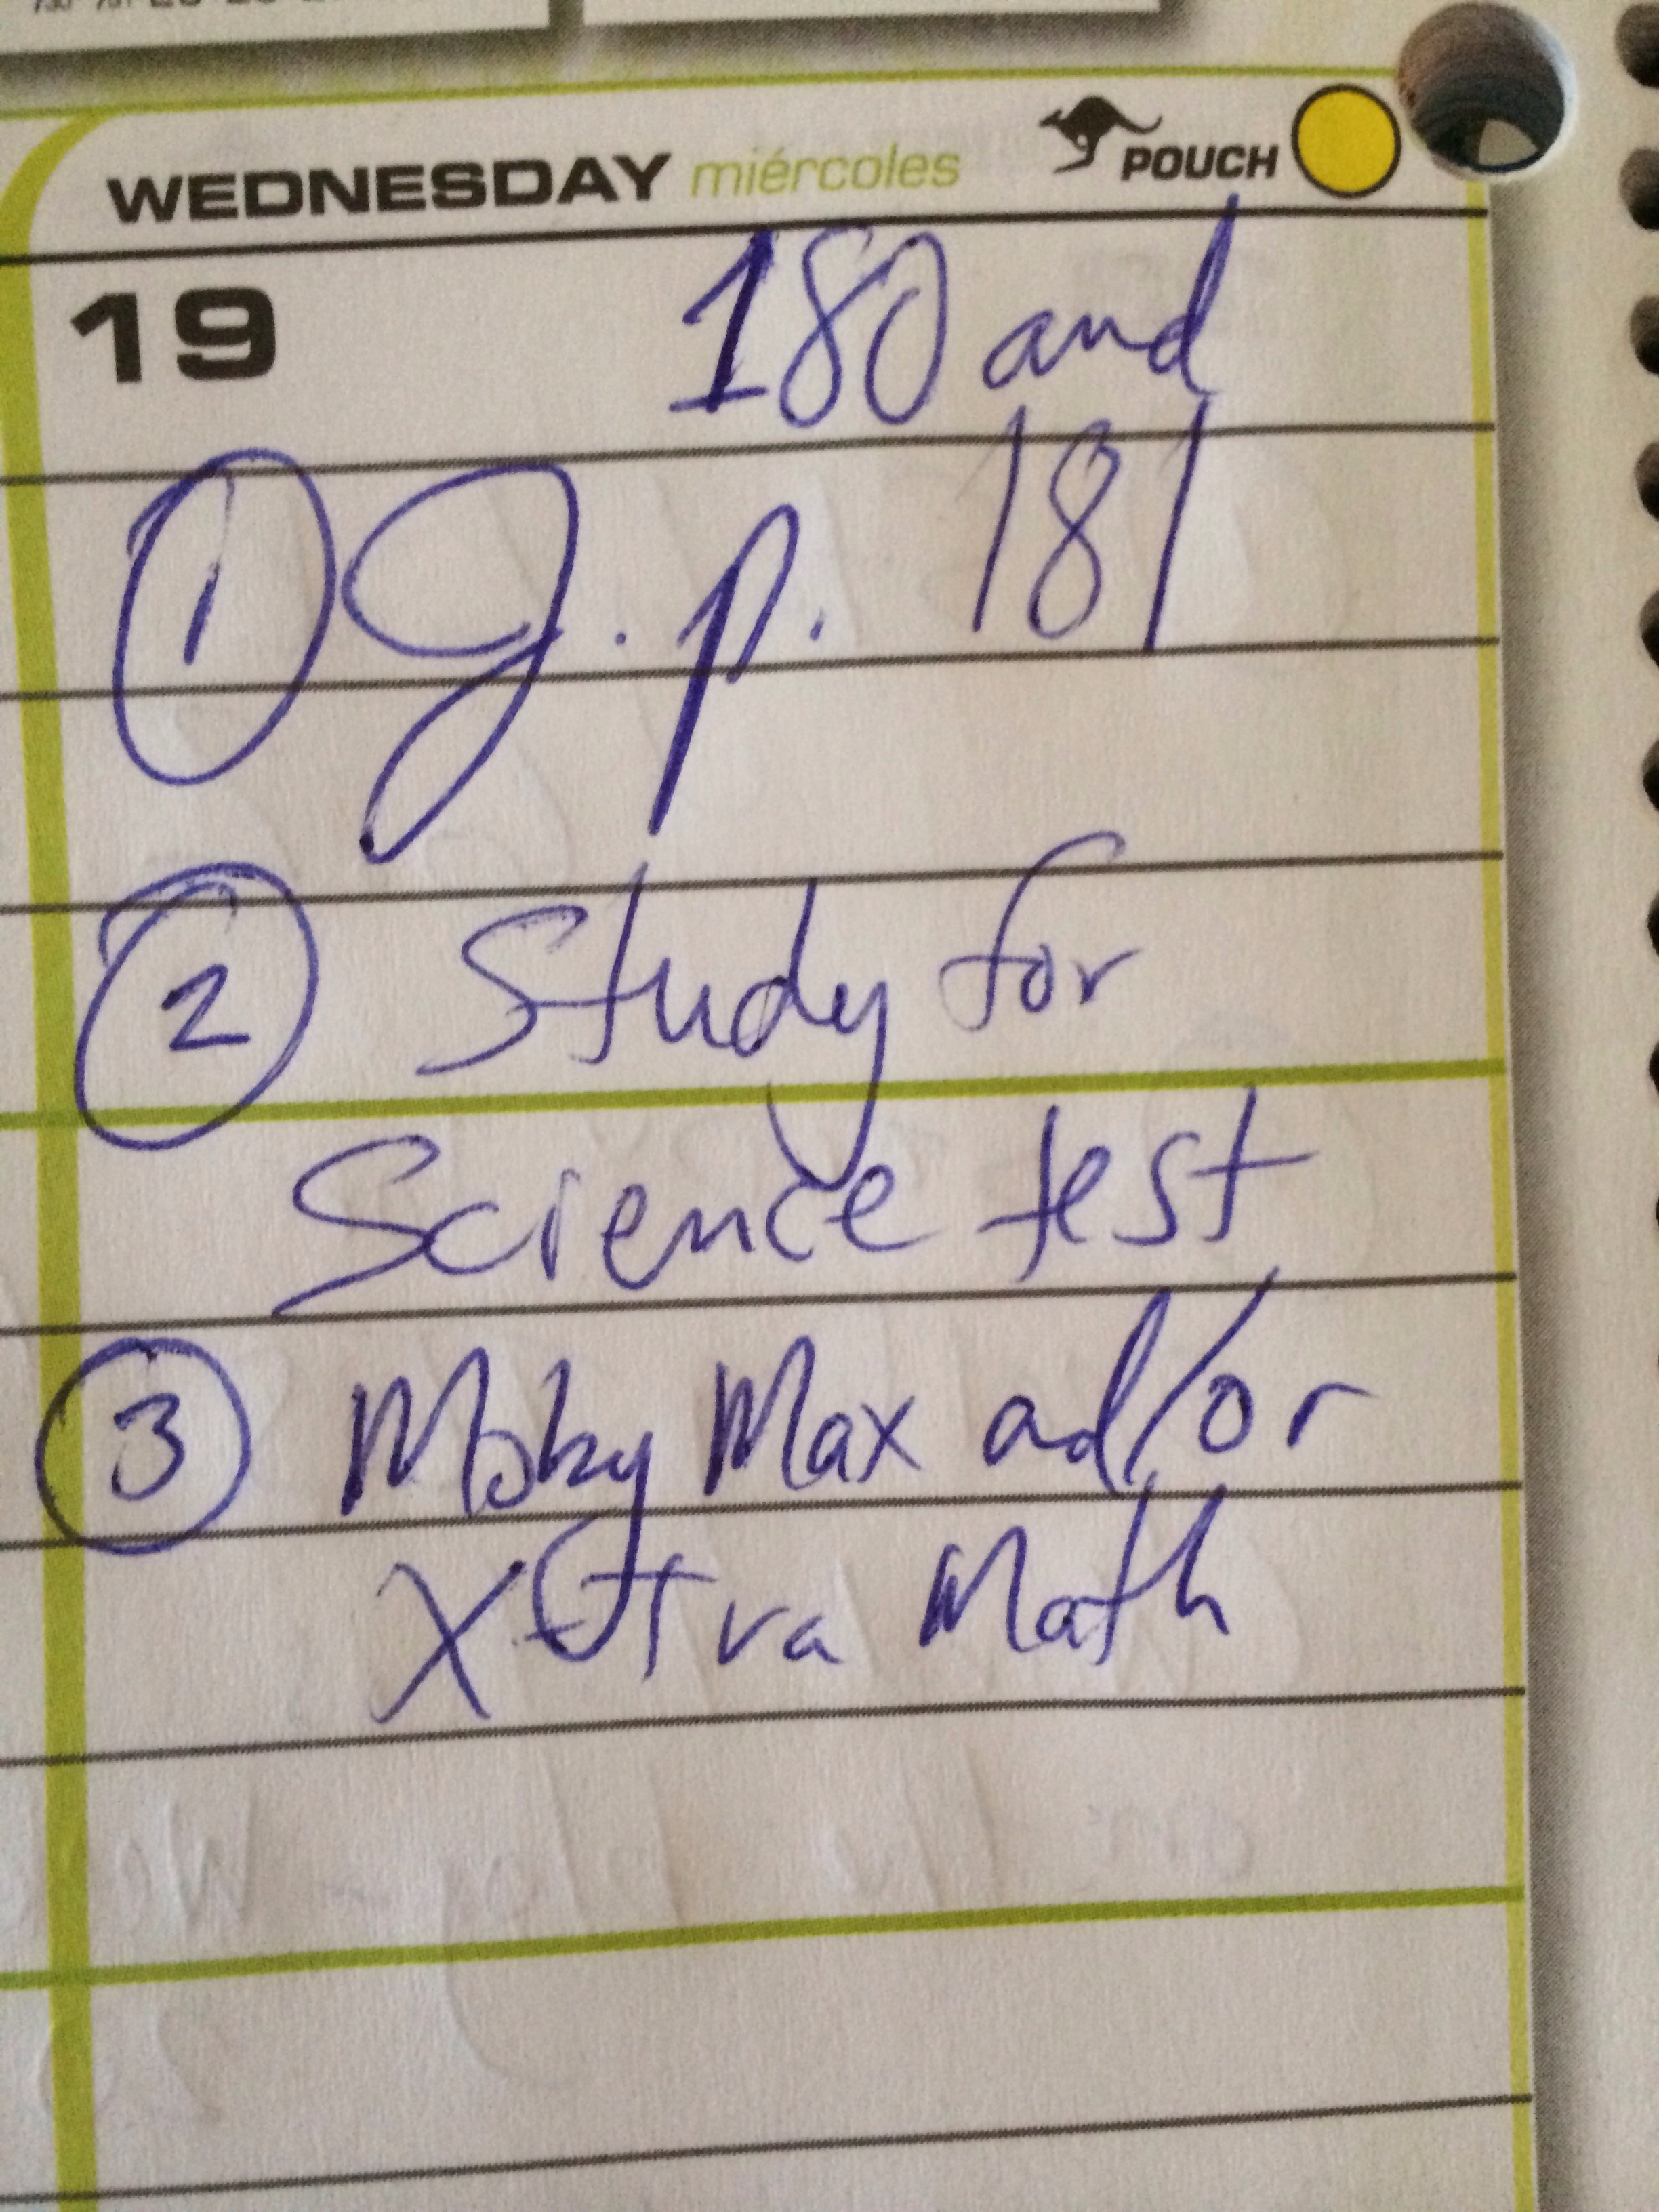 WEDNESDAY miércoles POUCH
19 180 and
1 J. p. 181
2 Study for
Science test
3 Moby Max ad/or
Xtra Math